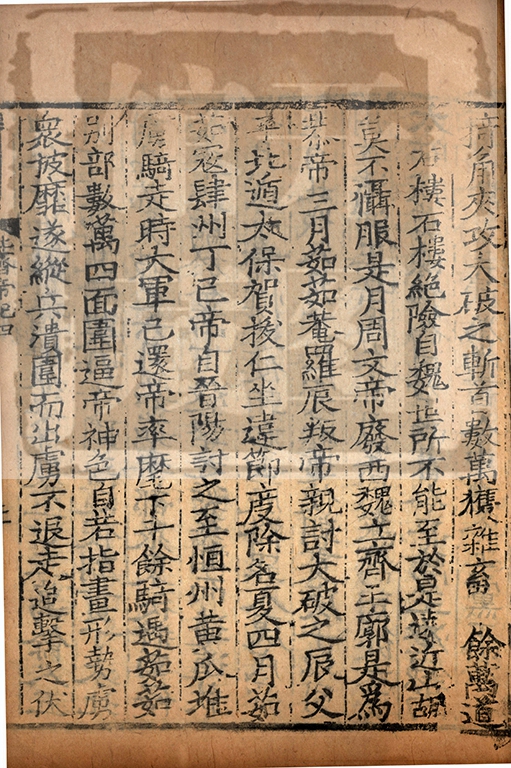 掎角夾攻大破之斬首數萬獲雜畜 餘萬遂
石樓石樓絕險自魏世所不能至於是遠近山胡
莫不懾服是月周文帝廢西魏主齊王廓是爲
恭帝三月茹茹菴羅辰叛帝親討大破之辰父
北遁太保賀拔仁坐違節度除名夏四月茹
茹寇肆州丁巳帝自晉陽討之至恒州黃瓜堆
虜騎走時大軍已還帝率麾下千餘騎遇茹茹
別部數萬四面圍逼帝神色自若指畫形勢虜
衆披靡遂縱兵潰圍而出虜不退走追擊之伏
北齊帝紀四